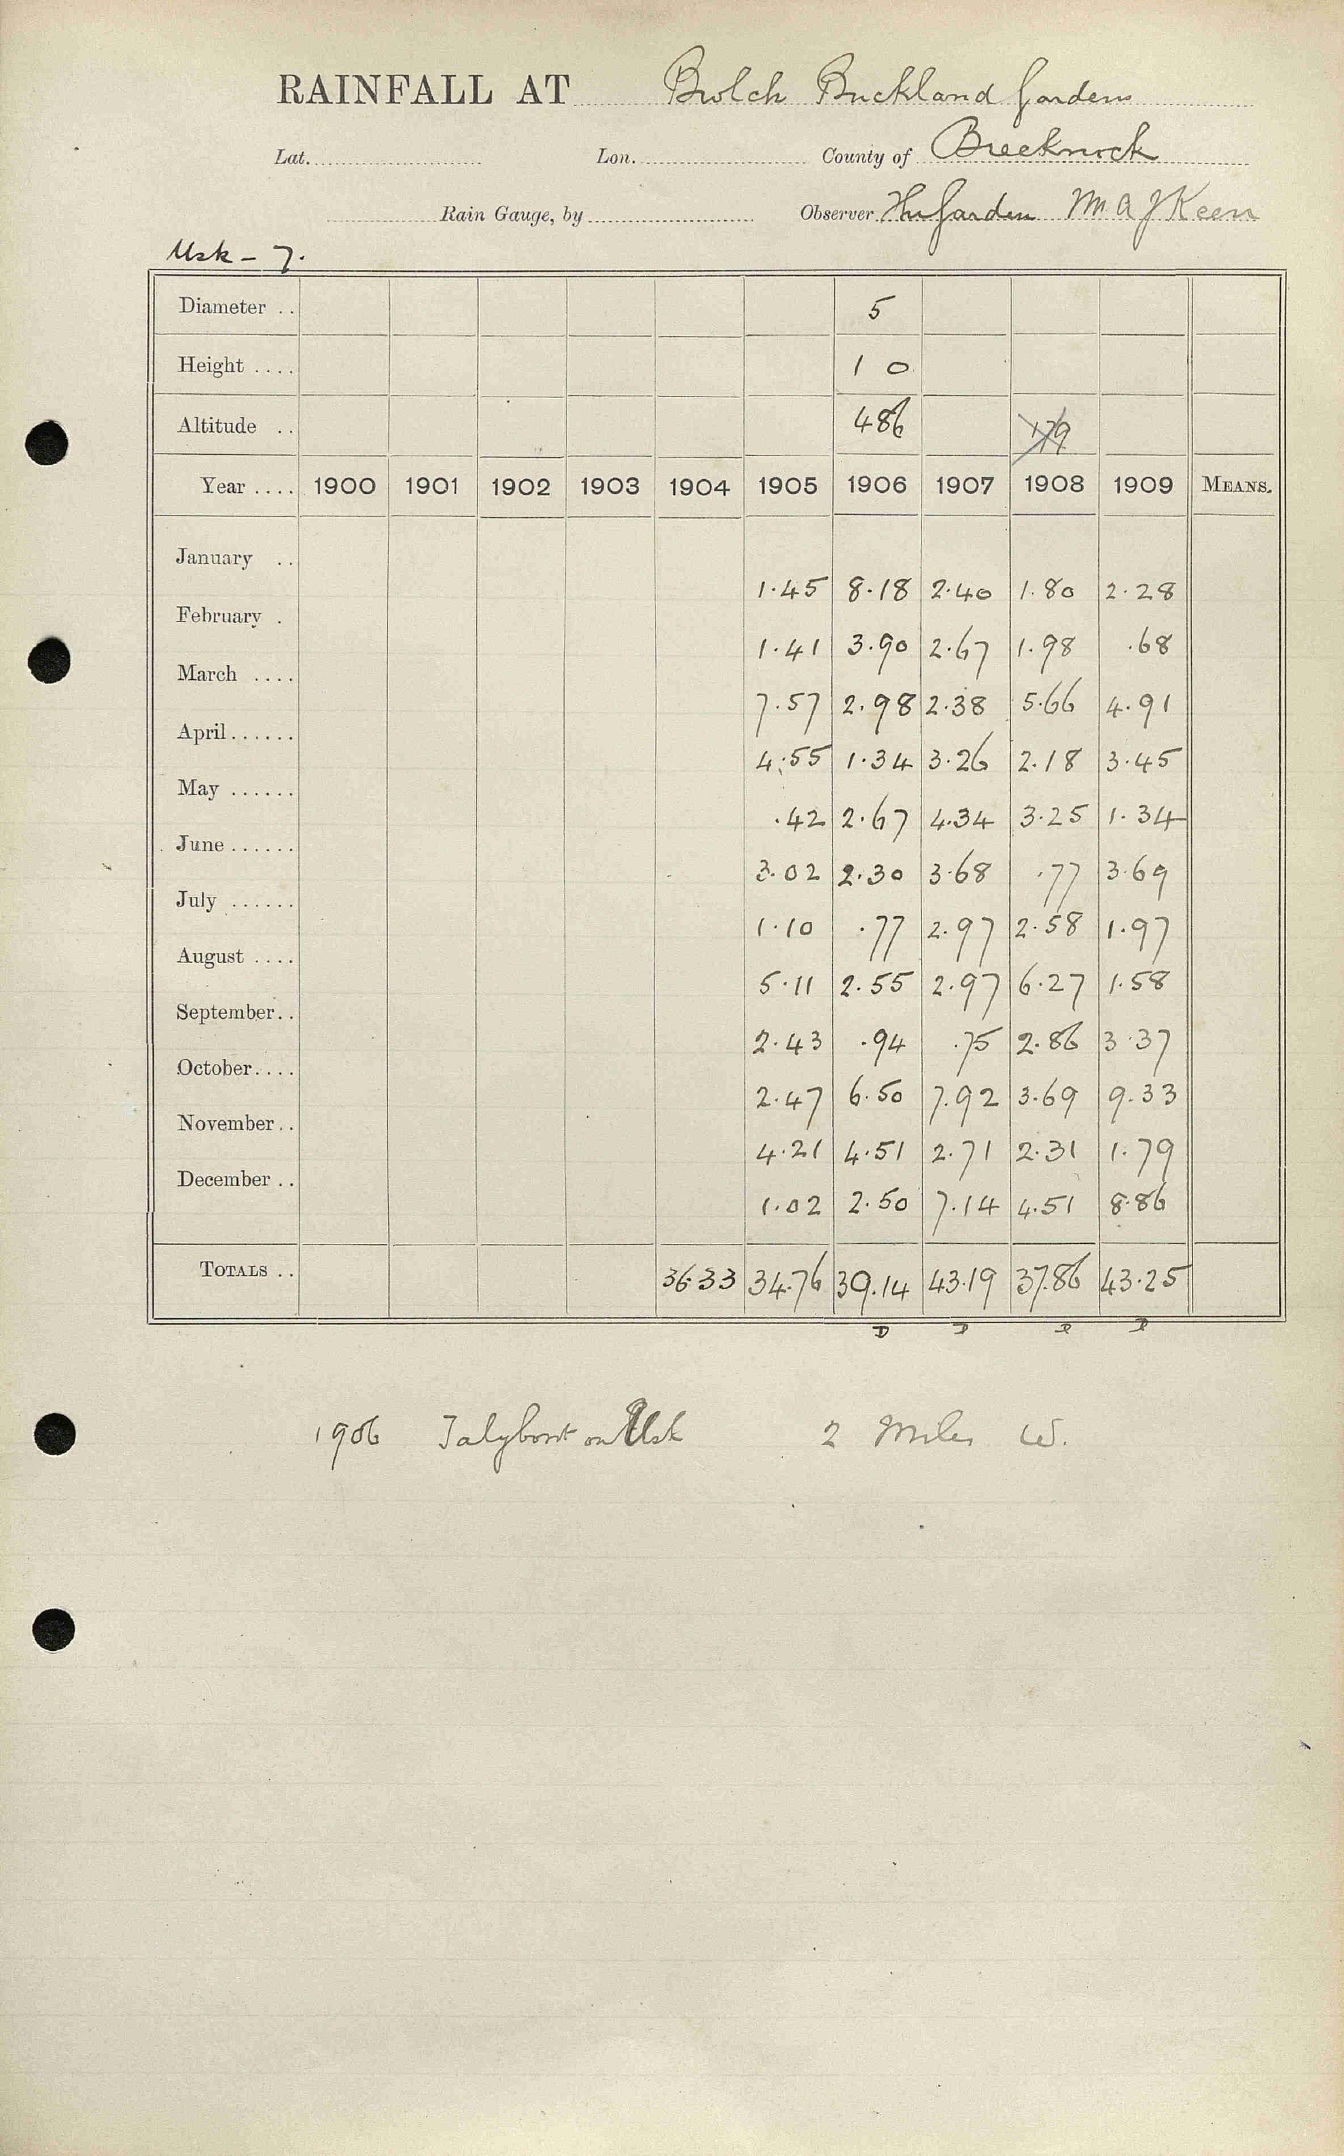 RAINFALL AT Bwlch Buckland Gardens
Lat. Lon. County of Brecknock
Rain Gauge, by Observer The Garden Mr A J Keen
Usk - 7.
Diameter .. 5
Height .... 1 0
Altitude .. 486 179
Year .... 1900 1901 1902 1903 1904 1905 1906 1907 1908 1909 MEANS.
January .. 1.45 8.18 2.40 1.80 2.28
February . 1.41 3.90 2.67 1.98 .68
March .... 7.57 2.98 2.38 5.66 4.91
April...... 4.55 1.34 3.26 2.18 3.45
May ...... .42 2.67 4.34 3.25 1.34
June ...... 3.02 2.30 3.68 .77 3.69
July ...... 1.10 .77 2.97 2.58 1.97
August .... 5.11 2.55 2.97 6.27 1.58
September.. 2.43 .94 .75 2.86 3.37
October.... 2.47 6.50 7.92 3.69 9.33
November.. 4.21 4.51 2.71 2.31 1.79
December .. 1.02 2.50 7.14 4.51 8.86
TOTALS .. 36.33 34.76 39.14 43.19 37.86 43.25
D D D D
1906 Talybont on Usk 2 Miles W.